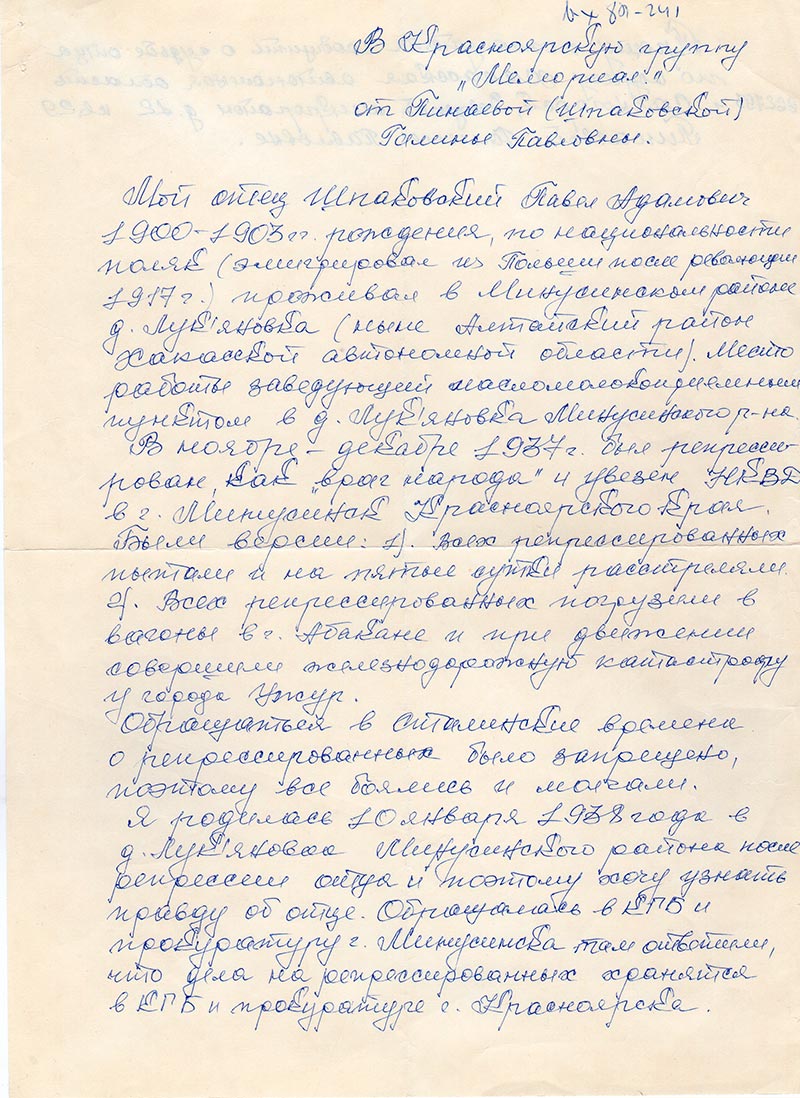 вх 801-241
В Красноярскую группу
„Мемориал"
от Пинаевой (Шпаковской)
Галины Павловны.
Мой отец Шпаковский Павел Адамович
1900-1903 гг. рождения, по национальности
поляк (эмигрировал из Польши после революции
1917 г.) проживал в Минусинском районе
д. Лук'яновка (ныне Алтайский район
Хакасской автономной области). Место
работы заведующий масломолокоприемным
пунктом в д. Лук'яновка Минусинского р-на.
В ноябре - декабре 1937 г. был репресси-
рован, как „враг народа" и увезен НКВД
в г. Минусинск Красноярского края.
Были версии: 1). Всех репрессированных
пытали и на пятые сутки расстреляли.
2). Всех репрессированных погрузили в
вагоны в г. Абакане и при движении
совершили железнодорожную катастрофу
у города Ужур.
Обращаться в Сталинские времена
о репрессированных было запрещено,
поэтому все боялись и молчали.
Я родилась 10 января 1938 года в
д. Лук'яновка Минусинского района после
репрессии отца и поэтому хочу узнать
правду об отце. Обращалась в КГБ и
прокуратуру г. Минусинска там ответили,
что дела на репрессированных хранятся
в КГБ и прокуратуре г. Красноярска.